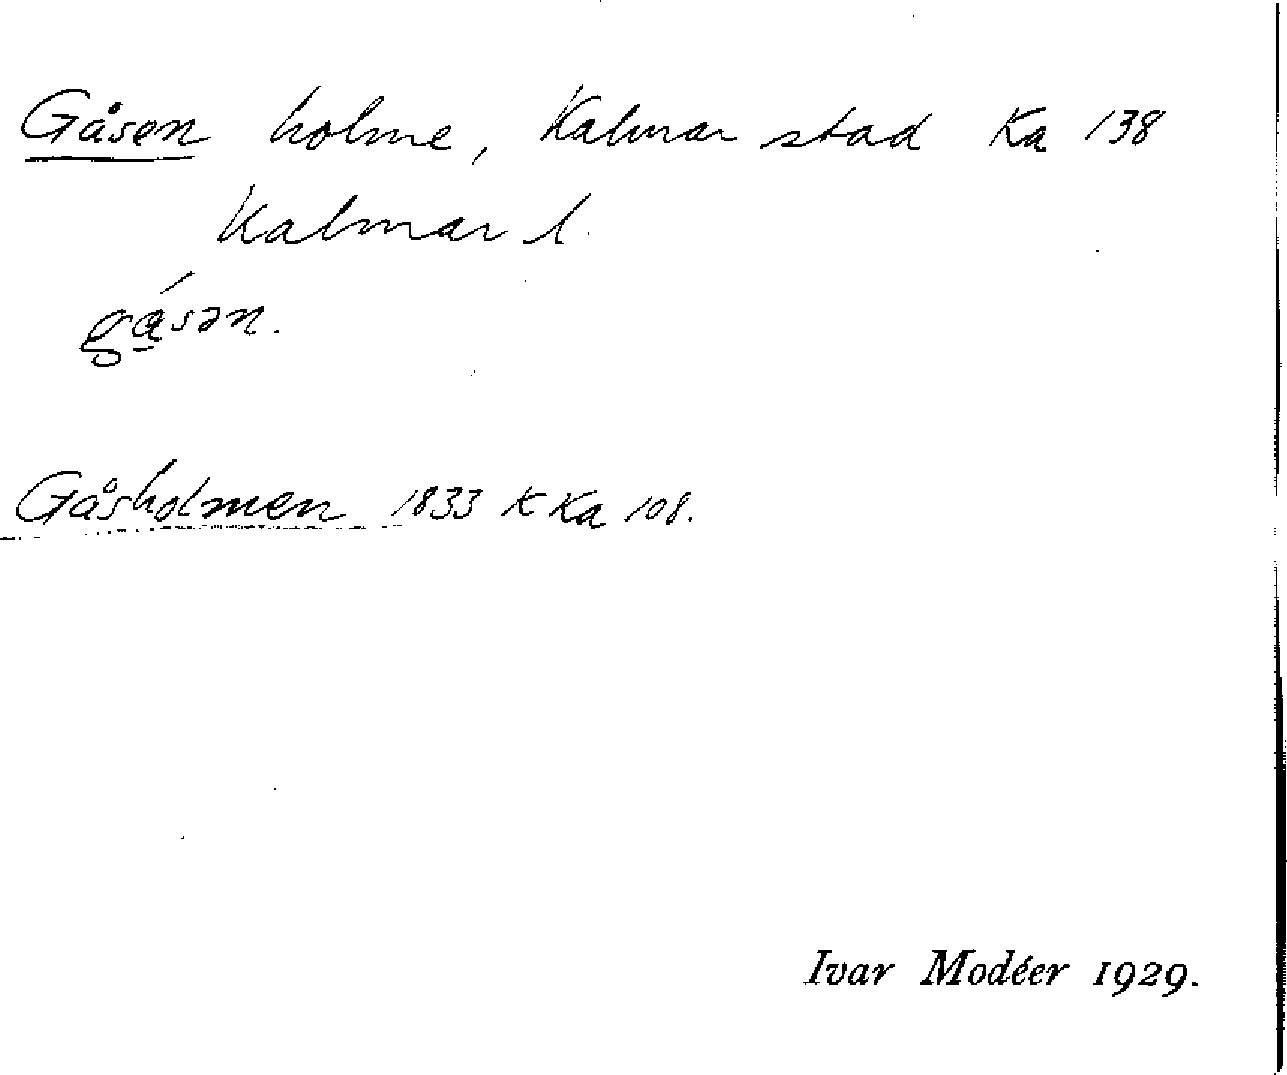 Gåsen holme, Kalmar stad Ka 138
Kalmar l.
gǻsən.
Gåsholmen 1833 K Ka 108.
Ivar Modéer 1929.